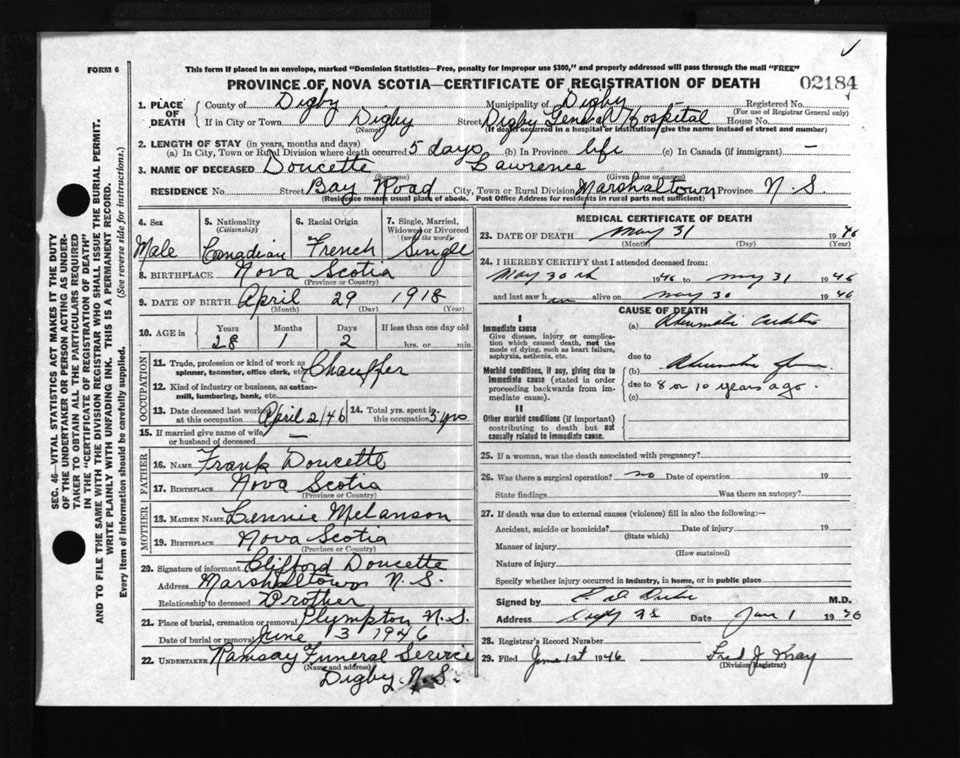 FORM 6
This form if placed in an envelope, marked "Dominion Statistics—Free, penalty for improper use $300," and properly addressed will pass through the mail "FREE"
PROVINCE OF NOVA SCOTIA—CERTIFICATE OF REGISTRATION OF DEATH 02184
1. PLACE OF DEATH
County of Digby Municipality of Digby Registered No.
(For use of Registrar General only)
If in City or Town Digby Street Digby General Hospital House No.
(Name) (If death occurred in a hospital or institution, give the name instead of street and number)
2. LENGTH OF STAY (in years, months and days)
(a) In City, Town or Rural Division where death occurred 5 days (b) In Province life (c) In Canada (if immigrant) —
3. NAME OF DECEASED Doucette Lawrence
(Surname) (Given name or names)
RESIDENCE No Street Bay Road City, Town or Rural Division Marshaltown Province N.S.
(Residence means usual place of abode. Post Office Address for residents in rural parts not sufficient)
4. Sex Male
5. Nationality (Citizenship) Canadian
6. Racial Origin French
7. Single, Married, Widowed or Divorced (write the word) Single
8. BIRTHPLACE Nova Scotia
(Province or Country)
9. DATE OF BIRTH April 29 1918
(Month) (Day) (Year)
10. AGE in Years Months Days If less than one day old
28 1 2 hrs. or min.
OCCUPATION
11. Trade, profession or kind of work as spinner, teamster, office clerk, etc. Chauffer
12. Kind of industry or business, as cotton-mill, lumbering, bank, etc.
13. Date deceased last worked at this occupation April 2/46 14. Total yrs. spent in this occupation 3 yrs
15. If married give name of wife or husband of deceased —
FATHER
16. NAME Frank Doucette
17. BIRTHPLACE Nova Scotia
(Province or Country)
MOTHER
18. MAIDEN NAME Lennie Melanson
19. BIRTHPLACE Nova Scotia
(Province or Country)
20. Signature of informant Clifford Doucette
Address Marshaltown N.S.
Relationship to deceased Brother
21. Place of burial, cremation or removal Plympton N.S.
Date of burial or removal June 3 1946
22. UNDERTAKER Ramsay Funeral Service
(Name and address)
Digby N.S.
MEDICAL CERTIFICATE OF DEATH
23. DATE OF DEATH May 31 1946
(Month) (Day) (Year)
24. I HEREBY CERTIFY that I attended deceased from:
May 30 1946 to May 31 1946
and last saw him alive on May 30 1946
CAUSE OF DEATH
I
Immediate cause
Give disease, injury or complication which caused death, not the mode of dying, such as heart failure, asphyxia, asthenia, etc.
(a) Rheumatic
due to
Morbid conditions, if any, giving rise to immediate cause (stated in order proceeding backwards from immediate cause).
(b) Rheumatic
due to 8 or 10 years ago.
(c)
II
Other morbid conditions (if important) contributing to death but not causally related to immediate cause.
25. If a woman, was the death associated with pregnancy?
26. Was there a surgical operation? no Date of operation 19
State findings Was there an autopsy?
27. If death was due to external causes (violence) fill in also the following:—
Accident, suicide or homicide? Date of injury 19
(State which)
Manner of injury
(How sustained)
Nature of injury
Specify whether injury occurred in industry, in home, or in public place
Signed by M.D.
Address Digby N.S. Date June 1 1946
28. Registrar's Record Number
29. Filed June 1st 1946 Fred J.
(Division Registrar)
SEC. 46—VITAL STATISTICS ACT MAKES IT THE DUTY
OF THE UNDERTAKER OR PERSON ACTING AS UNDER-
TAKER TO OBTAIN ALL THE PARTICULARS REQUIRED
IN THE "CERTIFICATE OF REGISTRATION OF DEATH"
AND TO FILE THE SAME WITH THE DIVISION REGISTRAR WHO SHALL ISSUE THE BURIAL PERMIT.
WRITE PLAINLY WITH UNFADING INK. THIS IS A PERMANENT RECORD.
Every item of information should be carefully supplied. (See reverse side for instructions.)